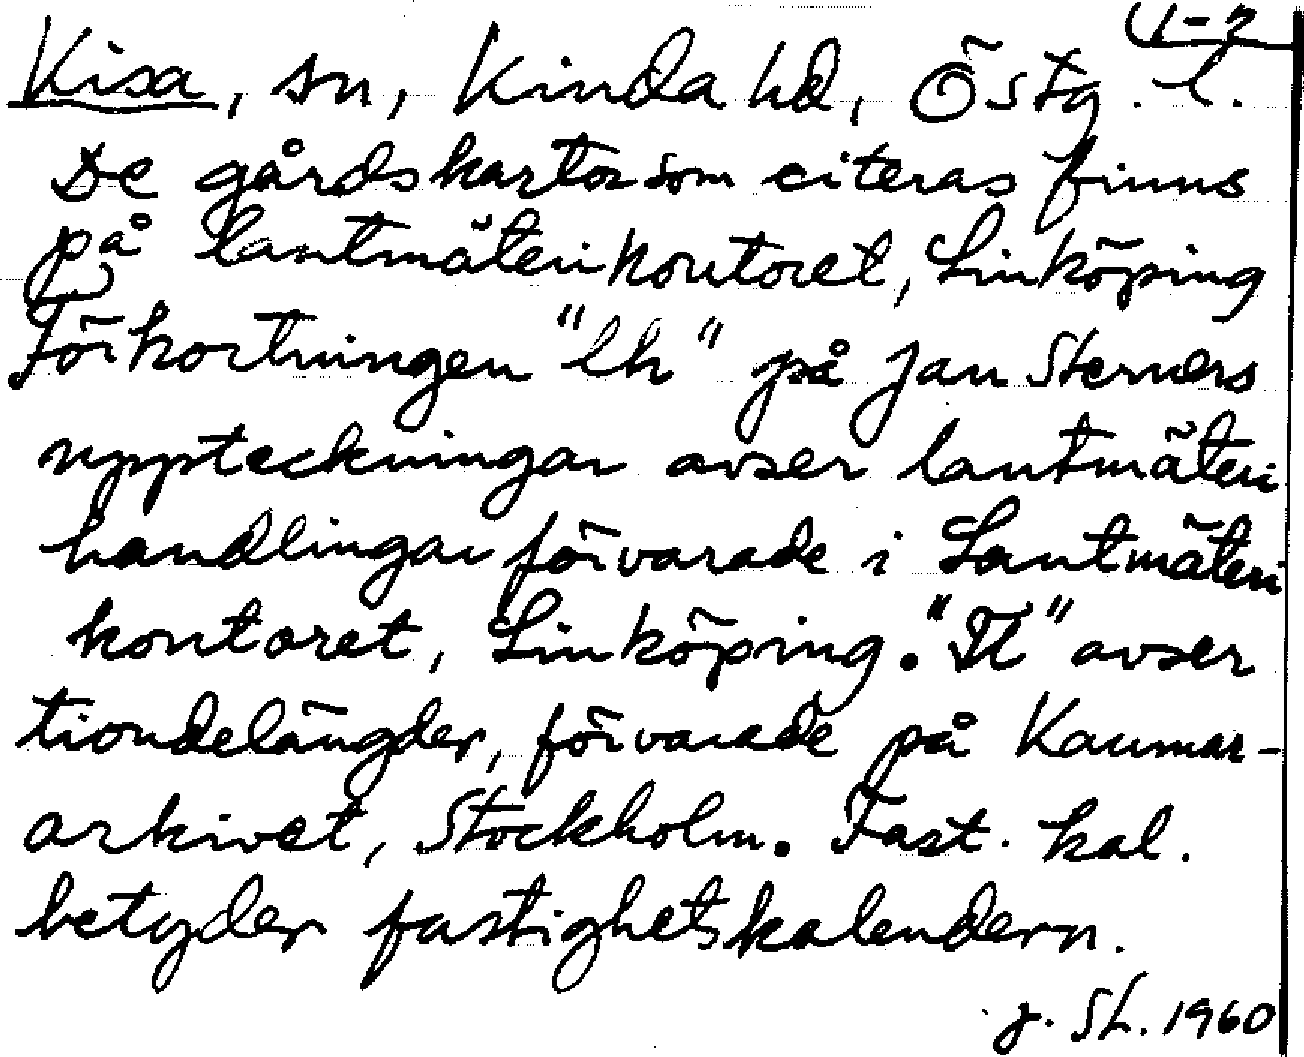 1-2
Kisa, sn, Kinda hd, Östg. l.
De gårdskartor som citeras finns
på lantmäterikontoret, Linköping
Förkortningen "lh" på Jan Sterners
uppteckningar avser lantmäteri
handlingar förvarade i Lantmäteri
kontoret, Linköping. "Tl" avser
tiondelängder, förvarade på Kammar-
arkivet, Stockholm. Fast. kal.
betyder fastighetskalendern.
J. St. 1960